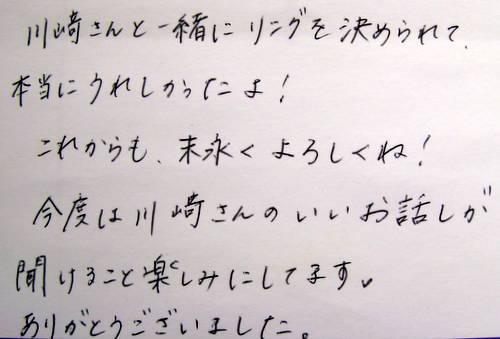 川崎さんと一緒にリングを決められて、
本当にうれしかったよ！
これからも、末永くよろしくね！
今度は川崎さんのいいお話しが
聞けること楽しみにしてます。
ありがとうございました。